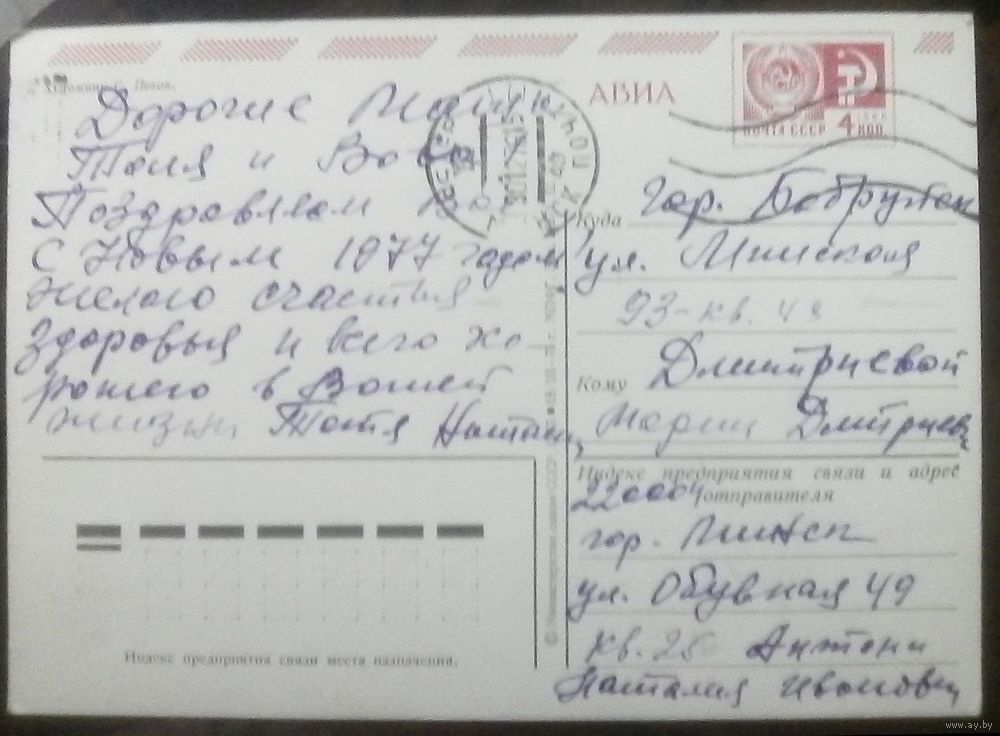 Художник С.
Дорогие Маня
Толя и Вова
Поздравляем Вас
с Новым 1977 годом
Желаю счастья
Здоровья и всего хо-
рошего в Вашей
жизни Тётя Наташа
АВИА
ПОЧТА СССР 4 КОП
МИНСК ПОЧТАМТ
Куда гор. Бобруйск
ул. Минская
93-кв. 44
Кому Дмитриевой
Марии Дмитриевн
Индекс предприятия связи и адрес
220004 отправителя
гор. Минск
ул. Обувная 49
кв. 25 Антони
Наталия Ивановн
Индекс предприятия связи места назначения.
© Министерство связи СССР
www.ay.by